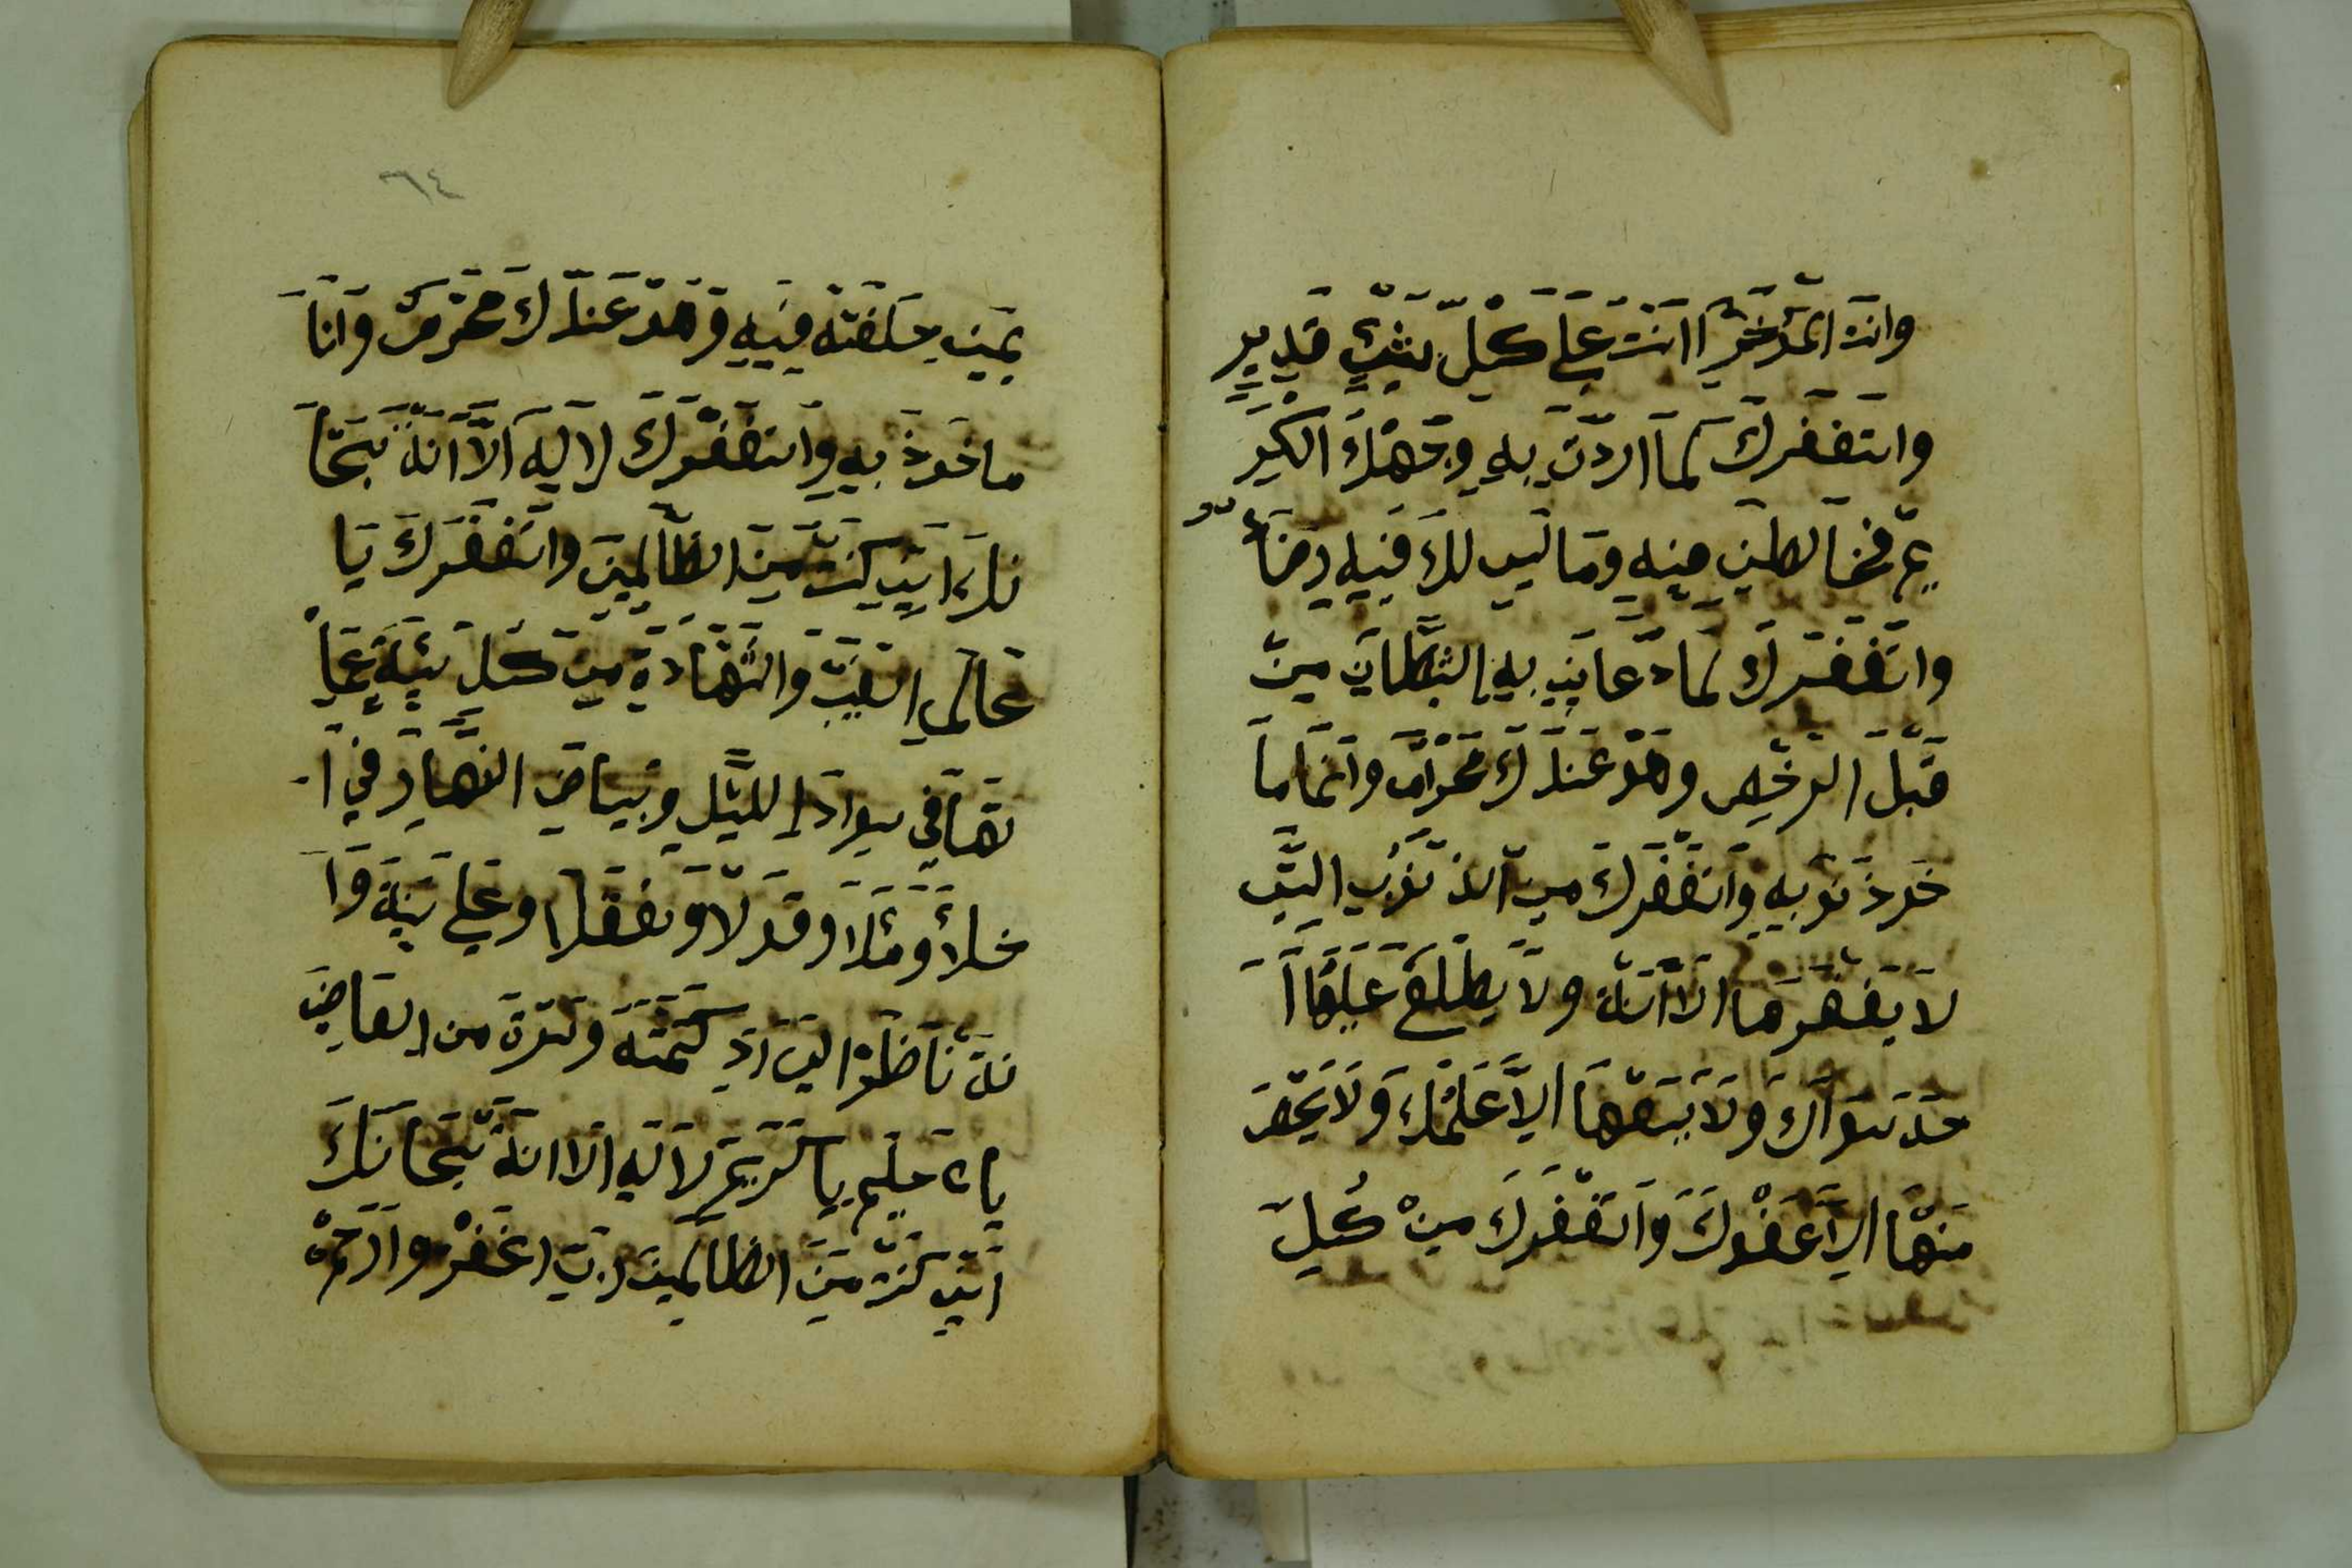 وانت المؤخر اانت على كل شئ قدير
واستغفرك لما اردت به وجهك الكر
يم فخالطني منه وما ليس لك فيه رضاء
واستغفرك لما دعاني به الشيطان من
قبل الرخص وهو عندك محرام وانما ما
خوذ نوبه واستغفرك من الذنوب التي
لا يغفرها الا انت ولا يطلع عليها ا
حد سواك ولا يسعها الا علمك ولا ينجي
منها الا عفوك واستغفرك من كل
٦٤
يمين حلفته فيه وهو عندك محترم وانا
ماخوذ به واستغفرك لا اله الا انت سبحا
نك اني كنت من الظالمين واستغفرك يا
عالم الغيب والشهادة من كل سيئة عملـ
تها في سواد الليل وبياض النهار في ا
خلاء وملاء وقولا وفعلا وعلانية وا
نت ناظر الي اذ كتمته وسترته من العاصي
يا حليم يا كريم لا اله الا انت سبحانك
اني كنت من الظالمين رب اغفر وارحم